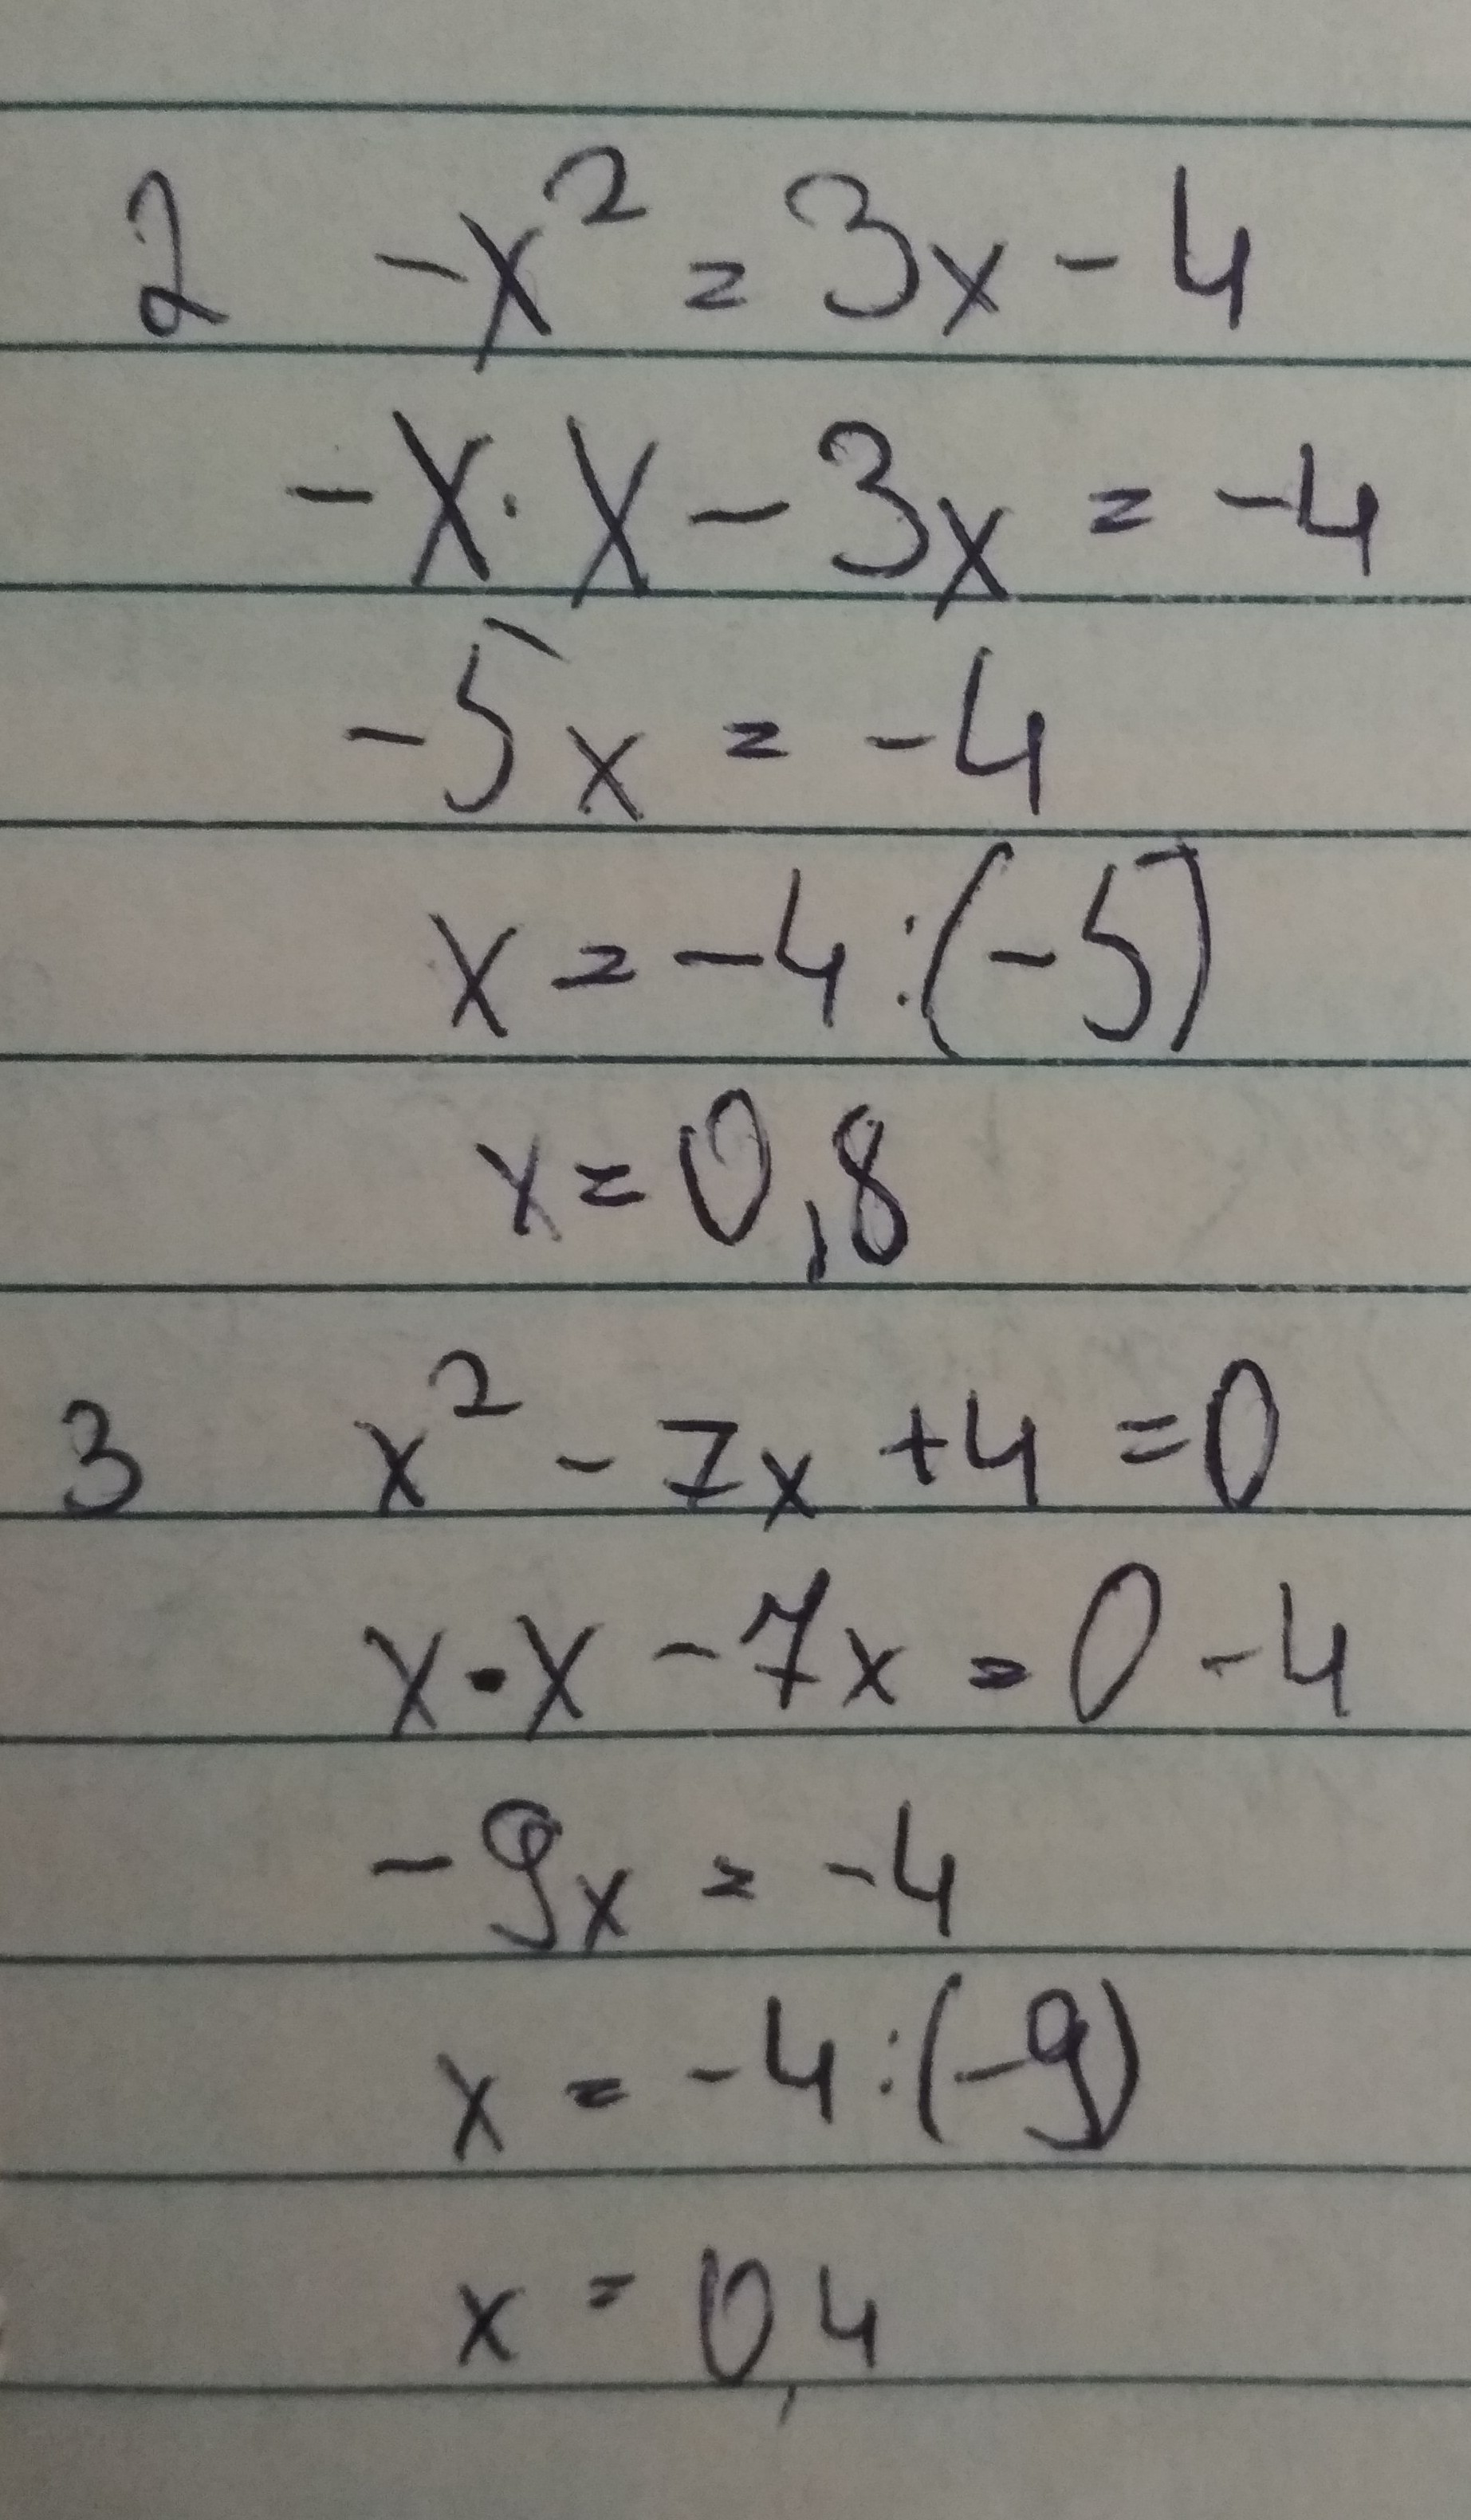 2 -x² = 3x - 4
-x · x - 3x = -4
-5x = -4
x = -4 : (-5)
x = 0,8
3 x² - 7x + 4 = 0
x · x - 7x = 0 - 4
-9x = -4
x = -4 : (-9)
x = 0,4